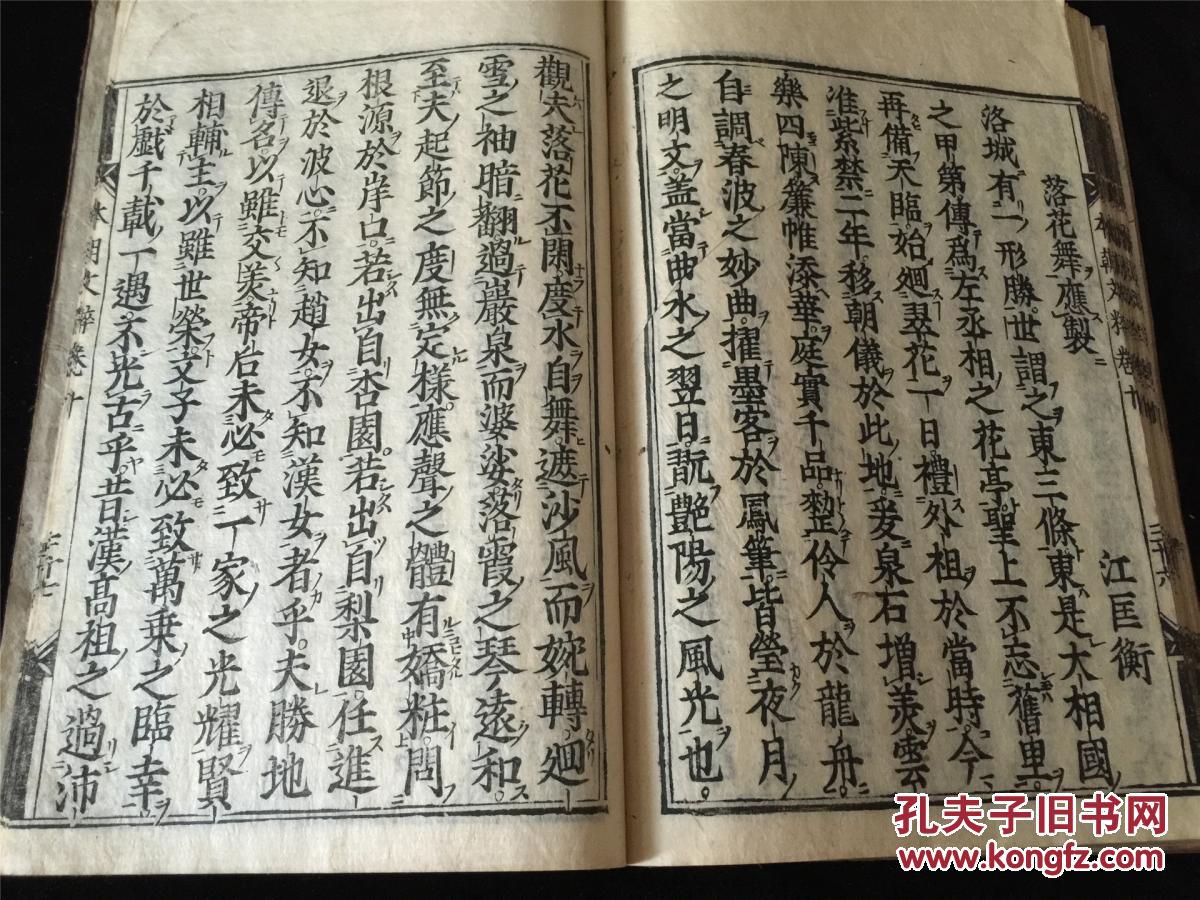 落花舞應製
江匡衡
洛城有一形勝世謂之東三條東是大相國
之甲第傳爲左丞相之花亭聖上不忘舊里
再備天臨始廻翠花一日禮外祖於當時今
准紫禁二年移朝儀於此地爰泉石增美雲
樂四陳簾帷添華庭實千品整伶人於龍舟
自調春波之妙曲擢墨客於鳳筆皆瑩夜月
之明文蓋當曲水之翌日翫艶陽之風光也
觀夫落花不閑度水自舞遮沙風而婉轉廻
雪之袖暗翻過巖泉而婆娑落霞之琴遠和
至夫起節之度無定樣應聲之體有嬌粧問
根源於岸口若出自杏園若出自梨園任進
退於波心不知趙女不知漢女者乎夫勝地
傳名以雖交美帝后未必致一家之光耀賢
相輔主以雖世榮父子未必致萬乗之臨幸
於戯千載一遇不光古乎昔漢髙祖之過沛
本朝文粹卷十
三十六
本朝文粹卷十
三十七
孔夫子旧书网
www.kongfz.com